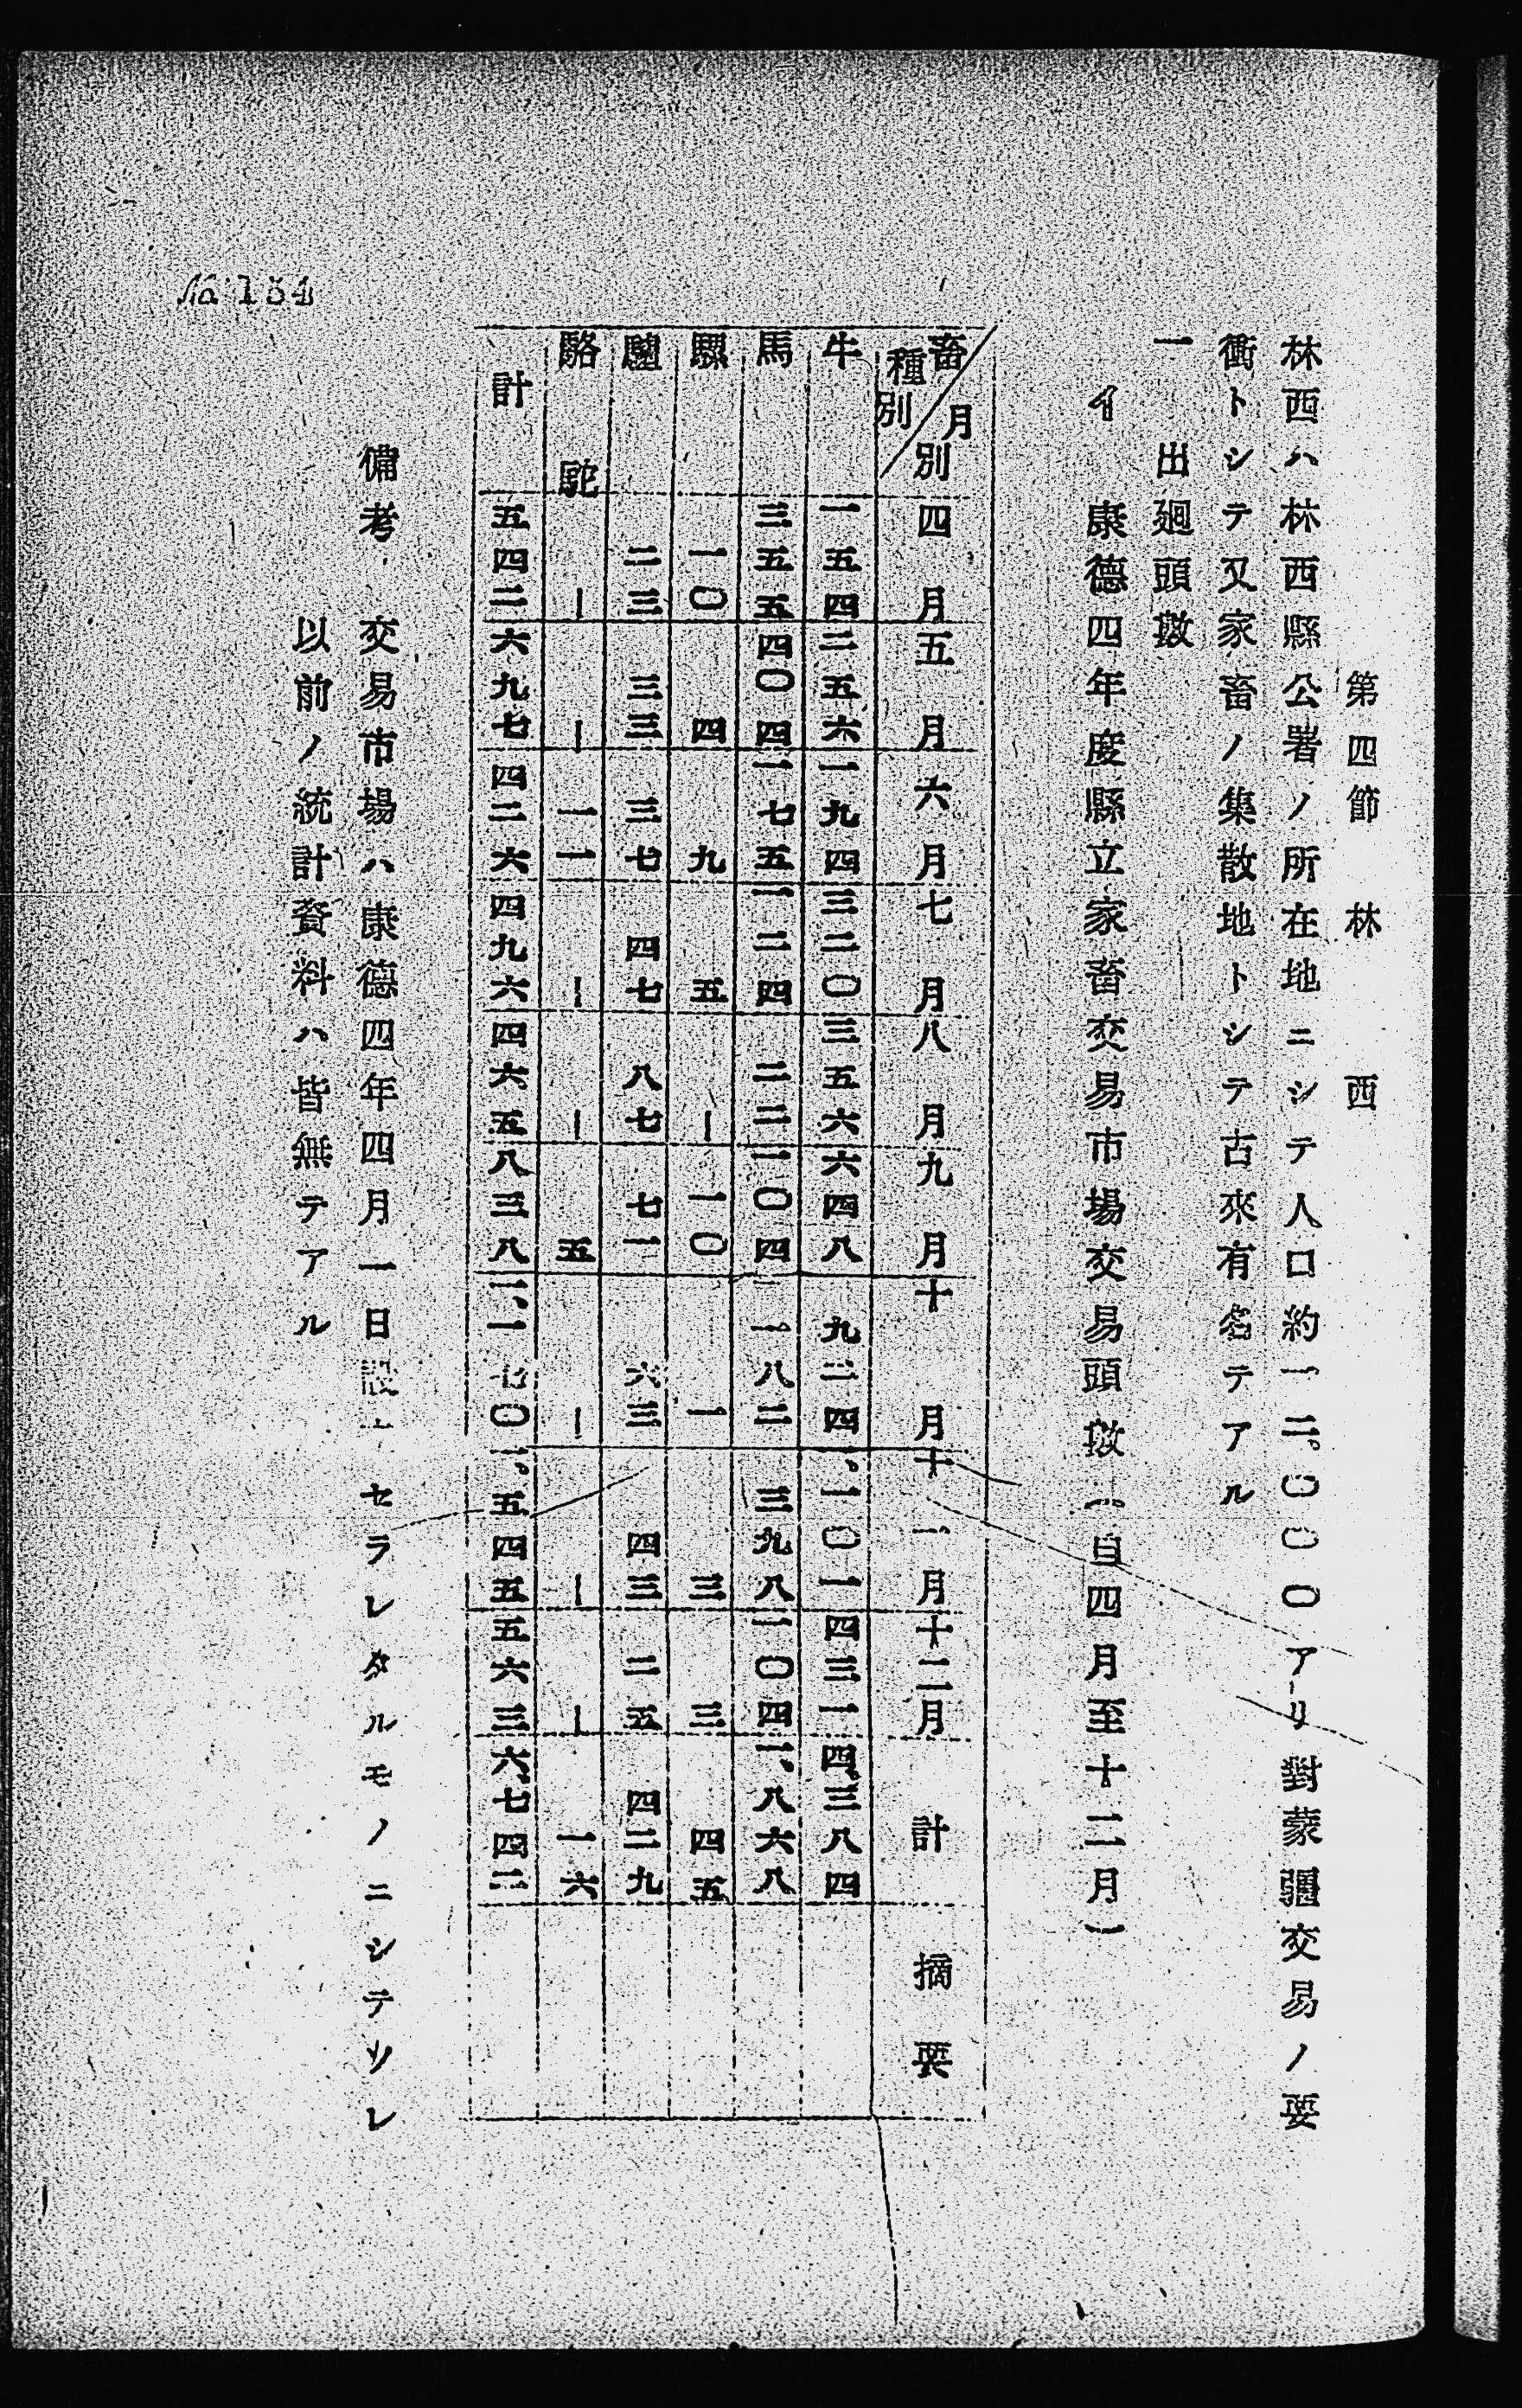 第四節 林西
林西ハ林西縣公署ノ所在地ニシテ人口約一二。〇〇〇アリ對蒙疆交易ノ要
衝トシテ又家畜ノ集散地トシテ古來有名テアル
一 出廻頭數
イ 康德四年度縣立家畜交易市場交易頭數(自四月至十二月)
畜種別/月別 四月 五月 六月 七月 八月 九月 十月 十一月 十二月 計 摘要
牛 一五四 二五六 一九四 三二〇 三五六 六四八 九二四 一、一〇一 四三一 四、三八四
馬 三五五 四〇四 一七五 一二四 二二 一〇四 一八二 三九八 一〇四 一、八六八
騾 一〇 四 九 五 ー 一〇 一 三 三 四五
驢 二三 三三 三七 四七 八七 七一 六三 四三 二五 四二九
駱駝 ー ー 一一 ー ー 五 ー ー ー 一六
計 五四二 六九七 四二六 四九六 四六五 八三八 一、一七〇 一、五四五 五六三 六、七四二
備考 交易市場ハ康德四年四月一日設セラレタルモノニシテソレ
以前ノ統計資料ハ皆無テアル
№154